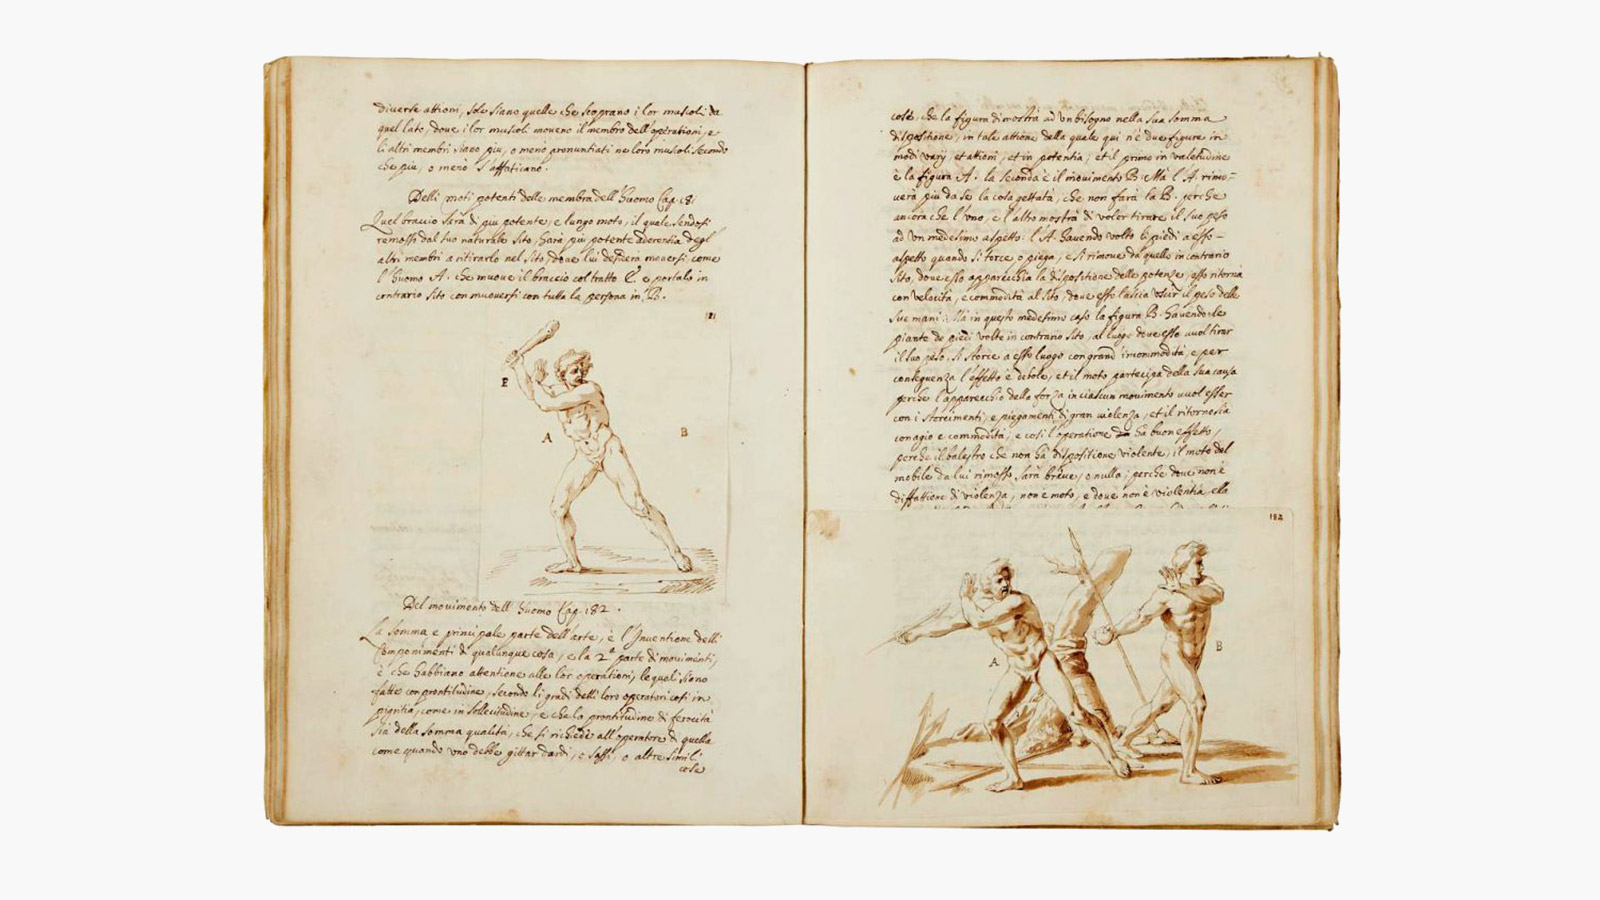 diverse attioni, sole siano quelle che scoprano i lor muscoli da
quel lato, dove i lor muscoli moueno il membro dell'operationi, e
li altri membri siano piu, o meno pronuntiati ne loro muscoli secondo
che piu, o meno s'affaticano.
Delli moti potenti delle membra dell'huomo Cap. 181
Quel braccio sarà di piu potente, e lungo moto, il quale sendosi
remosso dal suo naturale sito, harà più potente aderentia degl'
altri membri a ritirarlo nel sito, dove lui desidera mouersi come
l'huomo A. che muove il braccio col tratto E. e portalo in
contrario sito con muoversi con tutta la persona in B.
181
E
A
B
Del movimento dell'huomo Cap. 182.
La somma e principale parte dell'arte, è l'Inuentione delli
Componimenti di qualunque cosa, e la 2ª parte di movimenti,
è che habbiano attentione alle lor operationi, le quali siano
fatte con prontitudine, secondo li gradi delli loro operatori così in
pigritia, come in sollecitudine, e che la prontitudine di ferocità
sia della somma qualità, che si richiede all'operatore di quella
come quando uno debbe gittar dardi, o sassi, o altre simil
cose
cose, che la figura dimostra ad un bisogno nella sua somma
dispositione, in tale attione della quale qui n'è due figure in
modi varij, et attioni, et in potentia; et il primo in valetudine
è la figura A. la seconda è il movimento B. Mà l'A. rimo=
uerà piu da se la cosa gettata, che non farà la B. perche
ancora che l'uno, e l'altro mostrà di voler tirare il suo peso
ad un medesimo aspetto: l'A. havendo volto li piedi a esso
aspetto quando si torce o piega, e si rimove da quello in contrario
sito, dove esso apparecchia la dispositione delle potenze, esso ritorna
con velocità, e commodità al sito, dove esso lascia uscir il peso delle
sue mani. Ma in questo medesimo caso la figura B. havendo le
piante de piedi volte in contrario sito, al luogo dove esso vuol tirar
il suo peso, si storce a esso luogo con grand'incommodità, e per
conseguenza l'effetto è debole, et il moto partecipa della sua causa
perche l'apparecchio della forza in ciascun movimento vuol esser
con i storcimenti, e piegamenti di gran violenza, et il ritorno sia
con agio e commodità; e così l'operatione ha buon effetto,
perche il balestro che non ha dispositione violente; il moto del
mobile da lui rimosso sarà breve, o nulla; perche dove non è
disfattione di violenza, non è moto, e dove non è violentia ella
182
A
B